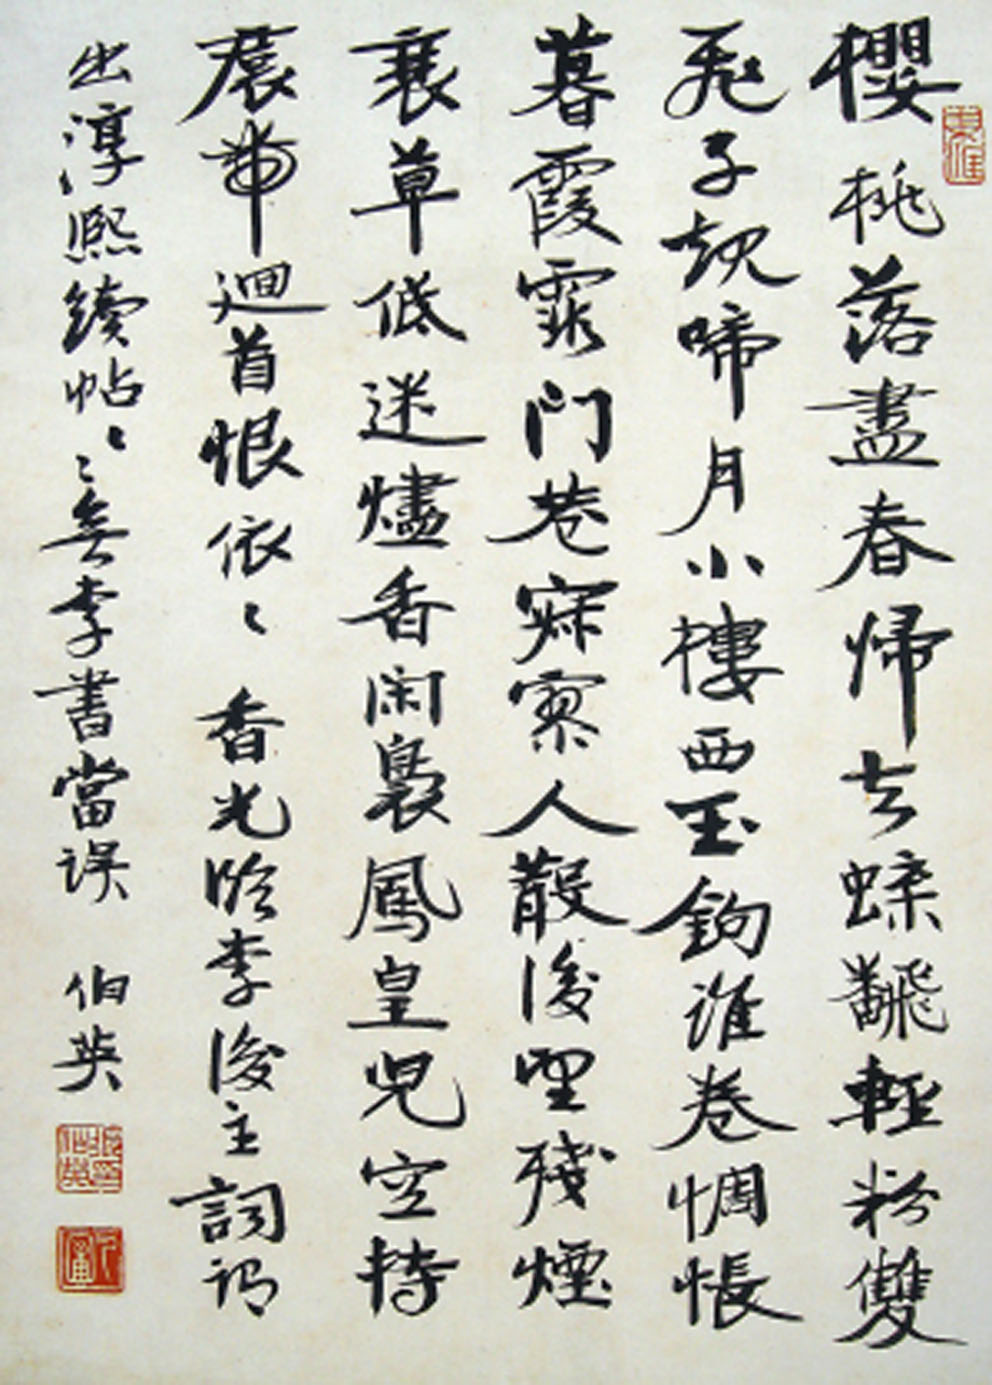 櫻桃落盡春歸去蝶飜輕粉雙
飛子規啼月小樓西玉鉤誰卷惆悵
暮霞霏門巷寂寥人散後望殘煙
衰草低迷燼香閑裊鳳皇兒空持
裠帶迴首恨依〻 香光臨李後主詞謂
出淳熙續帖〻〻無李書當誤 伯英